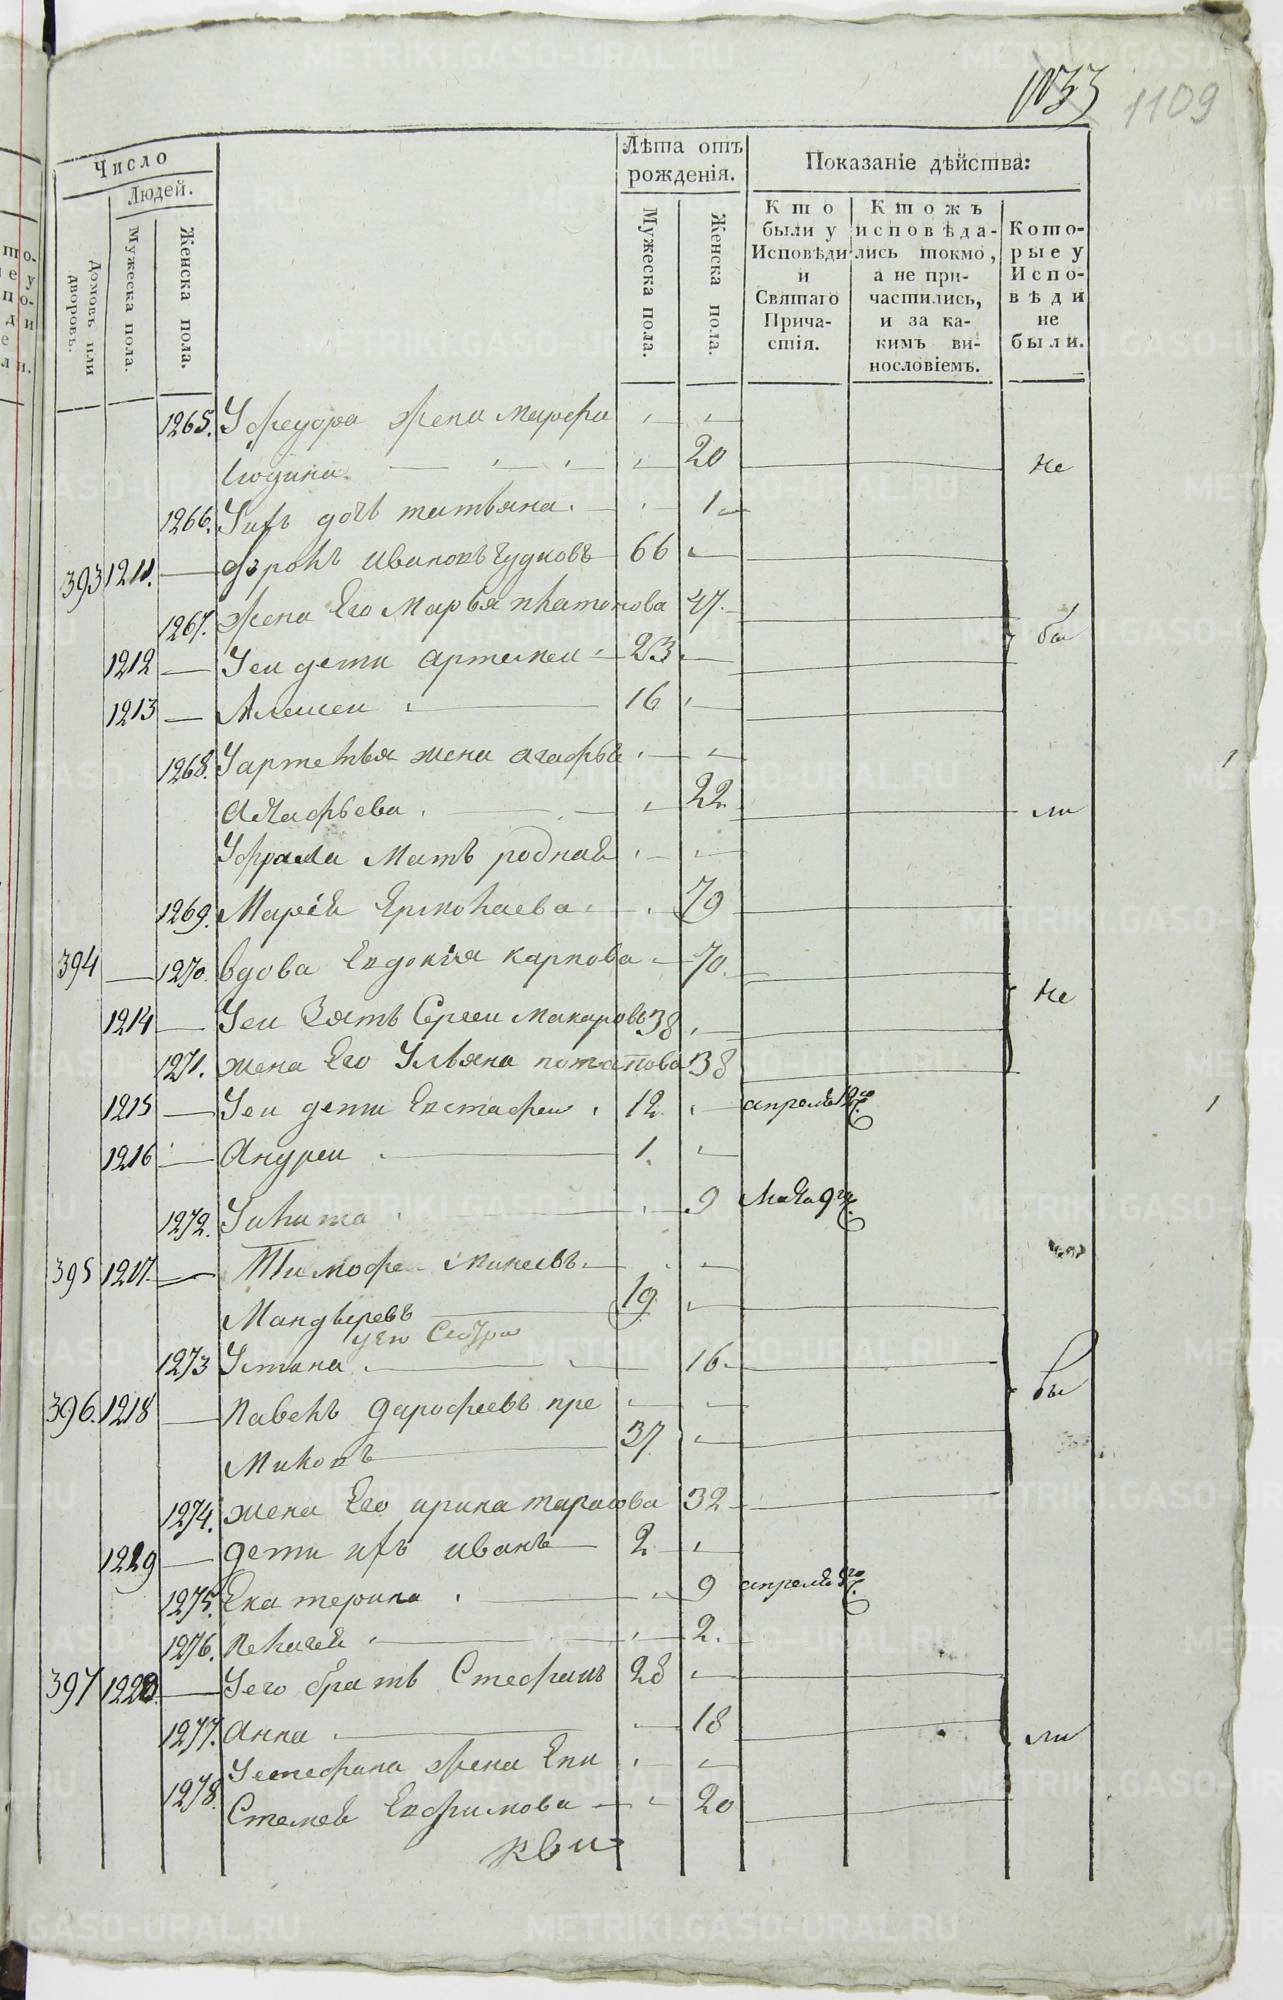 1033 1109
Число
Людей.
Домовъ или дворовъ.
Мужеска пола.
Женска пола.
Лѣта отъ рожденія.
Мужеска пола.
Женска пола.
Показаніе дѣйства:
Кто были у Исповѣди и Святаго Причастія.
Ктожъ исповѣдались токмо, а не причастились, и за какимъ винословіемъ.
Которые у Исповѣди не были.
1265. Уфедора жена марфа
Июдина 20 не
1266. Уихъ дочь татьяна 1
393 1211. фролъ ивановъ чудновъ 66
1267. жена Его Марья платонова 47. бы
1212 Уеи дети артемеи 23
1213 Алексеи 16
1268. Уартемья жена агафья
Алчафьева 22 ли
Уфрола Мать родная
1269. Марья Ермолаева 79
394 1270. вдова Евдокия карпова 70.
1214 Уеи Зять Сергеи Макаровъ 38 не
1271. жена Его Ульяна потапова 38
1215 Уеи дети Евстафеи 12 апреля 12го
1216 Андреи 1.
1272. Улита 9 Маия 9го
395 1217 Тимофе минеевъ
Мандыревъ 19.
уего Сестра
1273 Устина 16
396. 1218 павелъ дарофеевъ пре бы
миловъ 37
1274. жена Его ирина тарасова 32
1219 дети ихъ иванъ 2
1275. Екатерина 9 апреля 9го
1276. пелагея 2.
397 1220. Уего братъ Стефанъ 28
1277. Анна 18 ли
1278. Устефана жена Епи
Стемея Евфимова 20